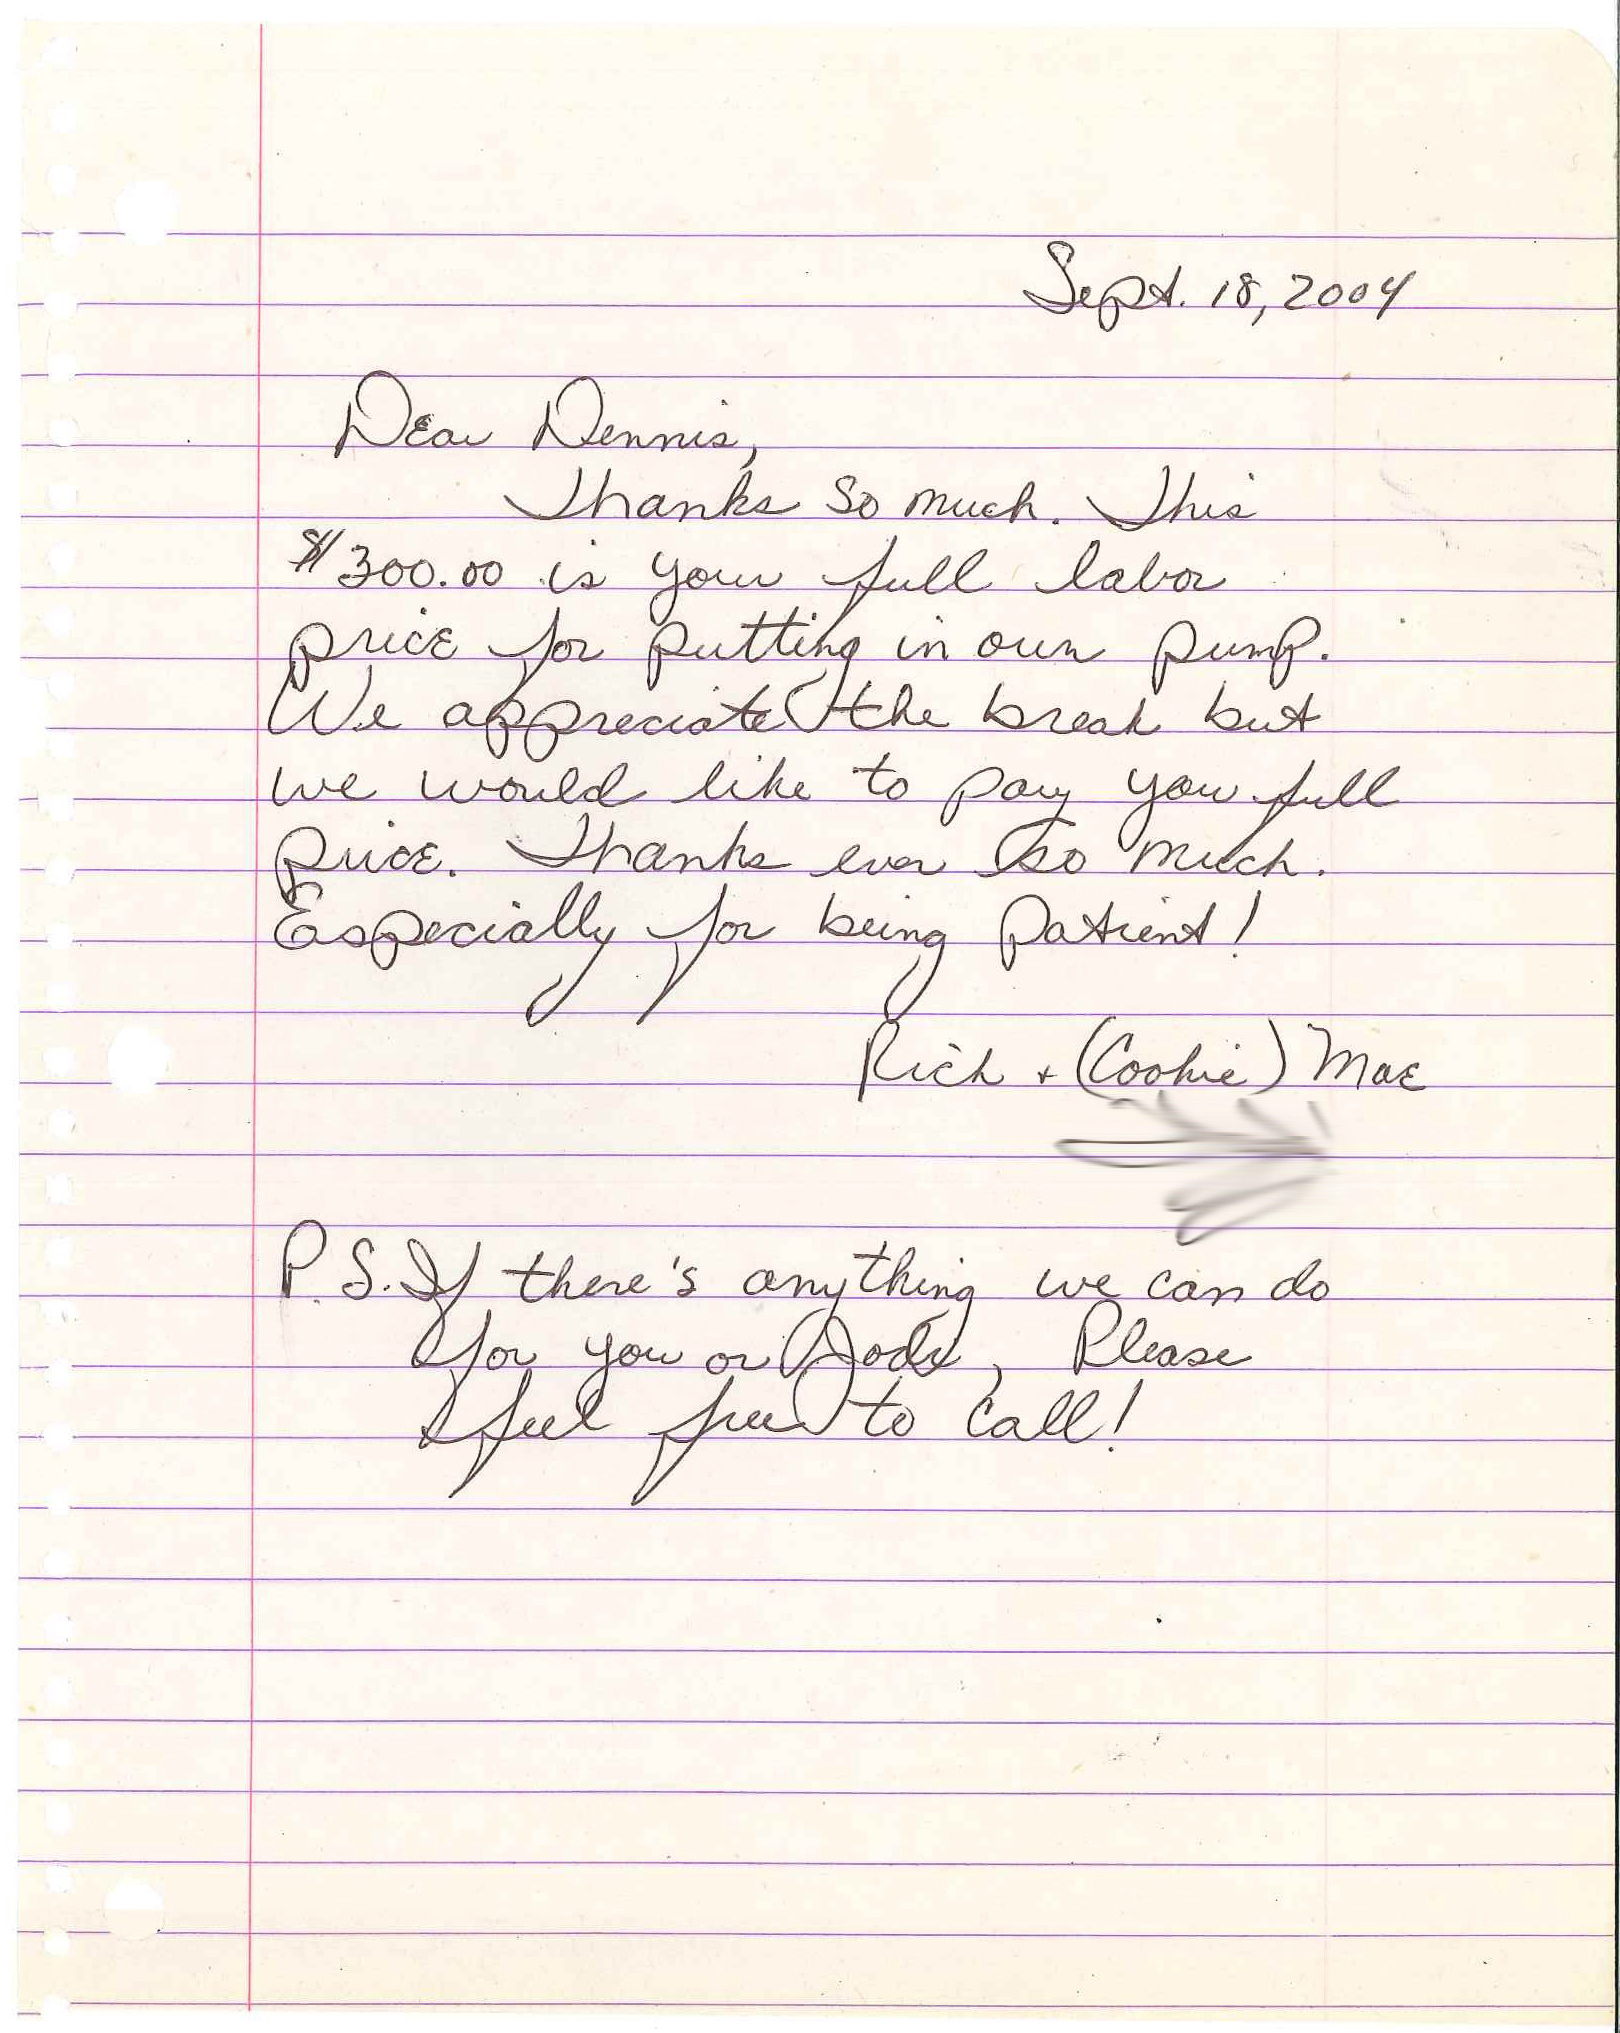 Sept. 18, 2004
Dear Dennis,
Thanks so much. This
$300.00 is your full labor
price for putting in our pump.
We appreciate the break but
we would like to pay you full
price. Thanks ever so much.
Especially for being patient!
Rich + (Cookie) Mae
P.S. If there's anything we can do
for you or Jode, Please
feel free to call!